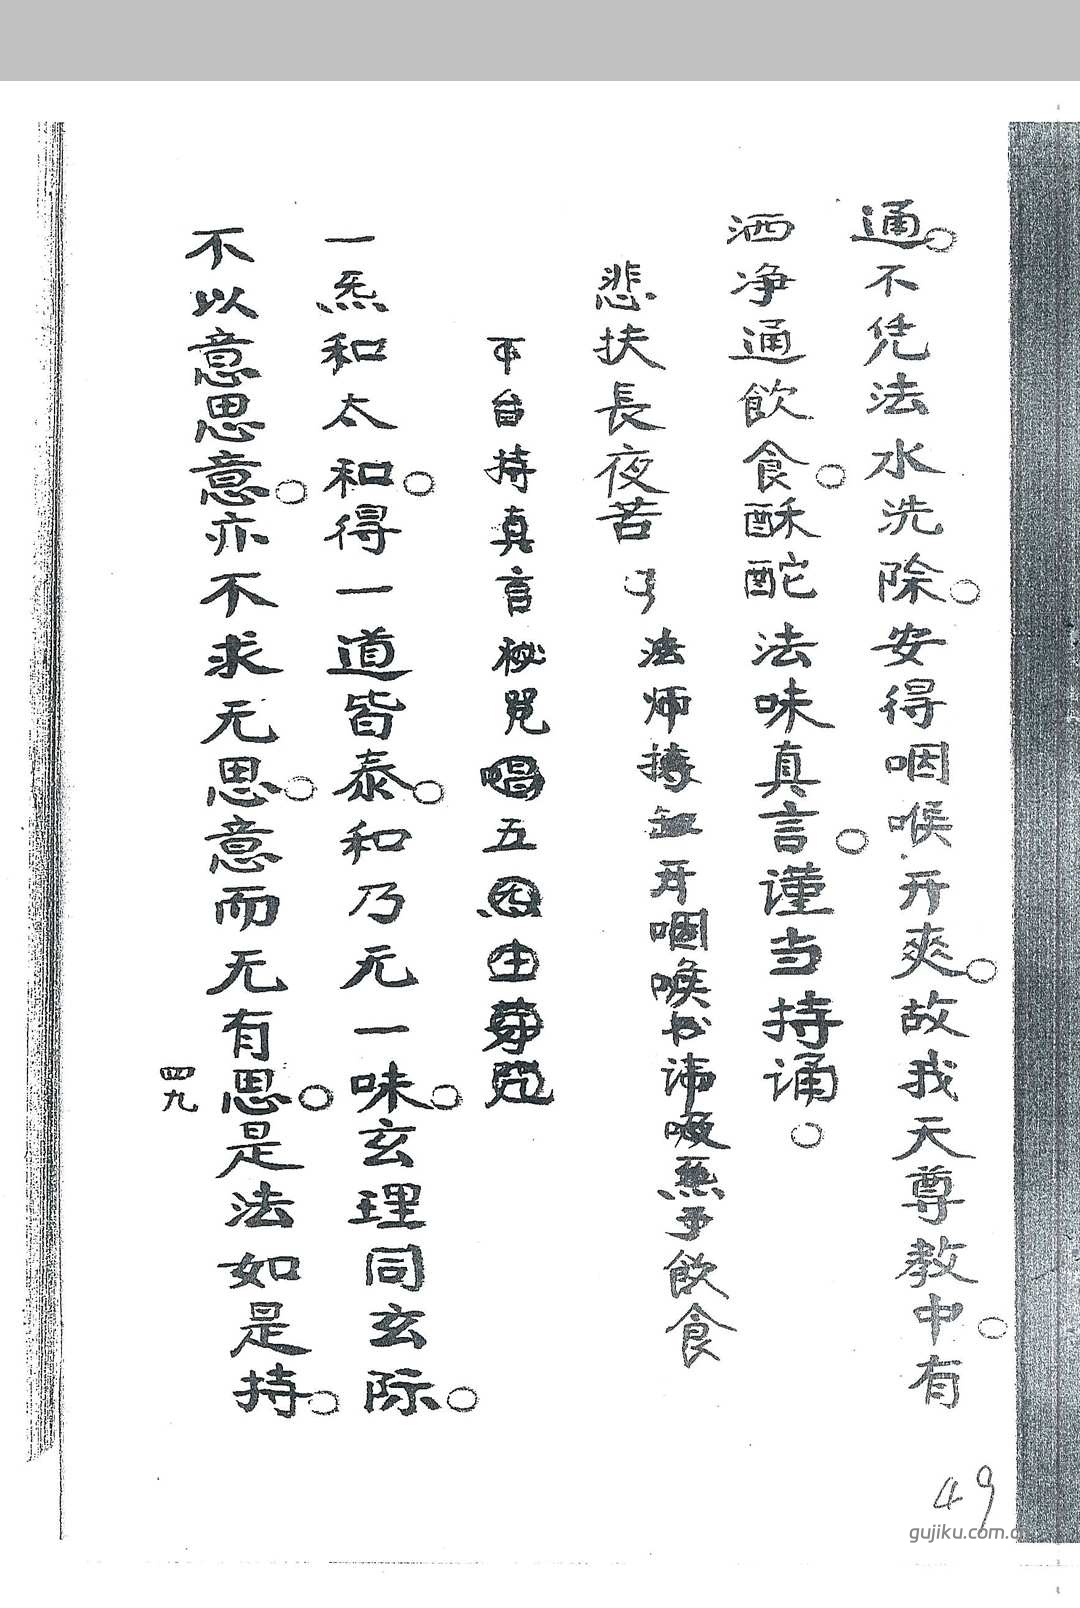 通○不凭法水洗除○安得咽喉开爽○故我天尊教中○有
洒净通飲食○酥酡法味真言○谨当持诵○
悲扶長夜苦
法师
开咽喉
飲食
台持真言秘咒唱五
一炁和太和○得一道皆泰○和乃无一味○玄理同玄际○
不以意思意○亦不求无思○意而无有思○是法如是持○
四九
49
gujiku.com